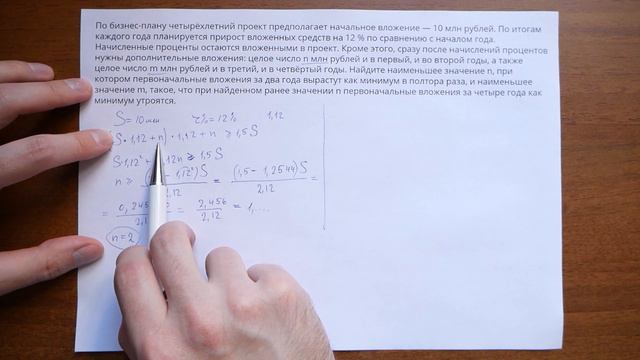 По бизнес-плану четырёхлетний проект предполагает начальное вложение — 10 млн рублей. По итогам
каждого года планируется прирост вложенных средств на 12 % по сравнению с началом года.
Начисленные проценты остаются вложенными в проект. Кроме этого, сразу после начислений процентов
нужны дополнительные вложения: целое число n млн рублей и в первый, и во второй годы, а также
целое число m млн рублей и в третий, и в четвёртый годы. Найдите наименьшее значение n, при
котором первоначальные вложения за два года вырастут как минимум в полтора раза, и наименьшее
значение m, такое, что при найденном ранее значении n первоначальные вложения за четыре года как
минимум утроятся.
S = 10 млн τ% = 12% 1,12
S · 1,12 + n) · 1,12 + n ≥ 1,5 S
S·1,12² + 12n ≥ 1,5 S
n ≥ 1,12²)S / 2,12 = (1,5 - 1,2544)S / 2,12 =
= 0,245 / 2,1 = 2,456 / 2,12 = 1,....
n = 2